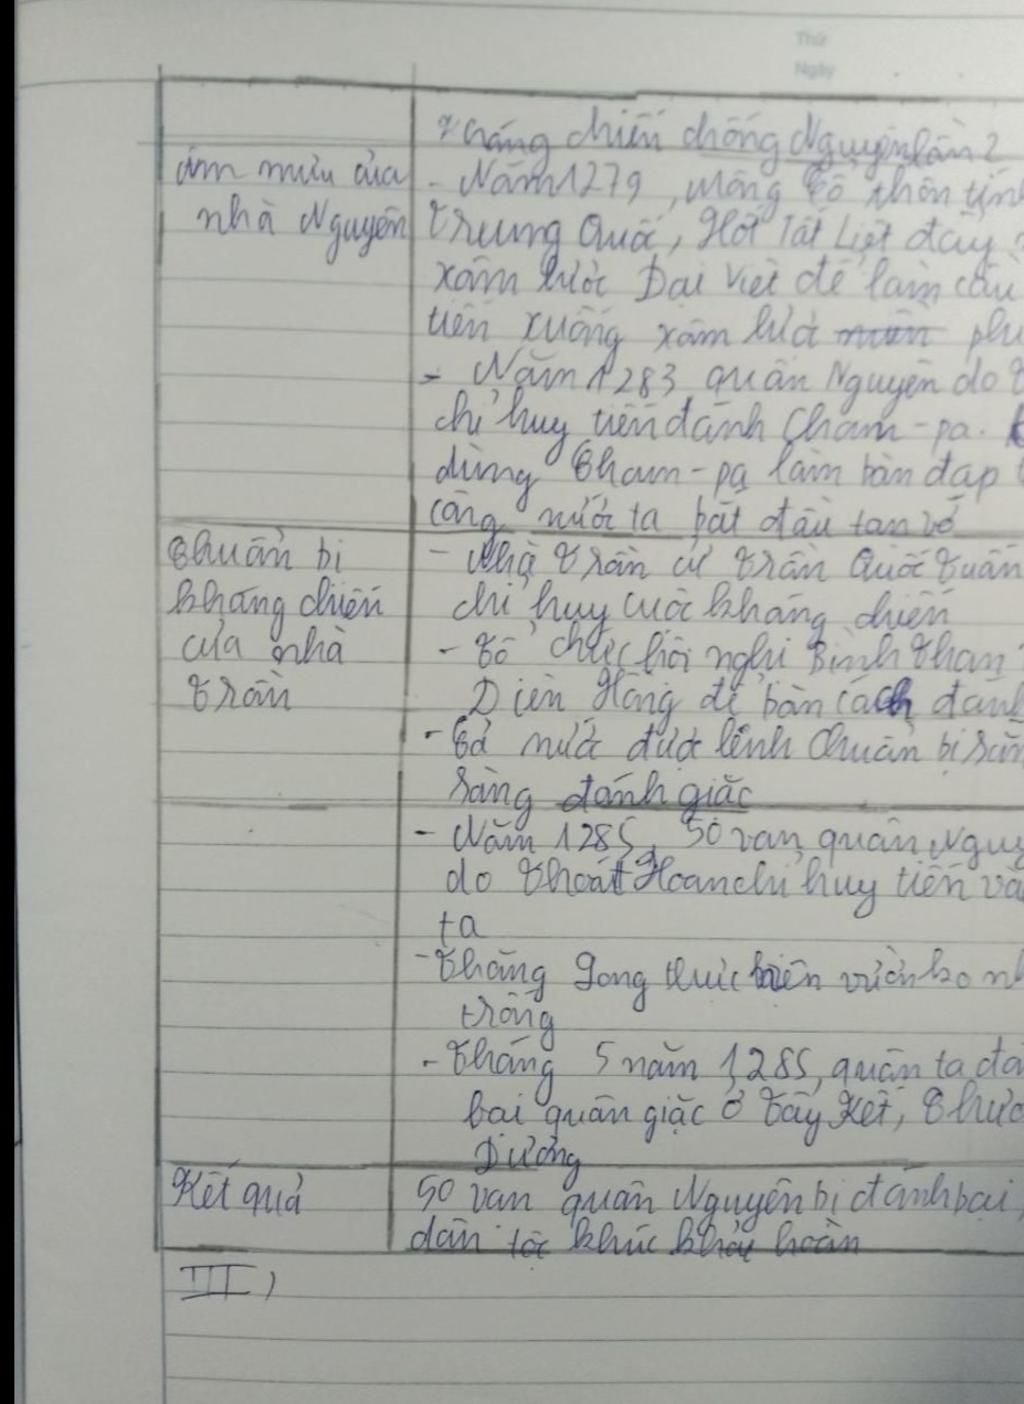 Thứ
Ngày
kháng chiến chống Nguyên lần 2
âm mưu của
nhà Nguyên
- Năm 1279, Mông Cổ thôn tín
Trung Quốc, Hốt Tất Liệt đẩy
xâm lược Đại Việt để làm cầu
tiến xuống xâm lược miền ph
- Năm 1283 quân Nguyên do T
chỉ huy tiến đánh Cham-pa.
dùng Cham-pa làm bàn đạp t
công nước ta bắt đầu tan vỡ
Chuẩn bị
kháng chiến
của nhà
Trần
- Nhà Trần cử Trần Quốc Tuấn
chỉ huy cuộc kháng chiến
- Tổ chức hội nghị Bình Than
Diên Hồng để bàn cách đánh
- Cả nước được lệnh chuẩn bị sẵn
sàng đánh giặc
- Năm 1285, 50 vạn quân Nguy
do Thoát Hoan chỉ huy tiến và
ta
- Thăng Long thực hiện vườn ko nh
trống
- Tháng 5 năm 1285, quân ta đá
bại quân giặc ở Tây Kết, Chươ
Dương
Kết quả
50 vạn quân Nguyên bị đánh bại,
dân tộc khúc khải hoàn
III)